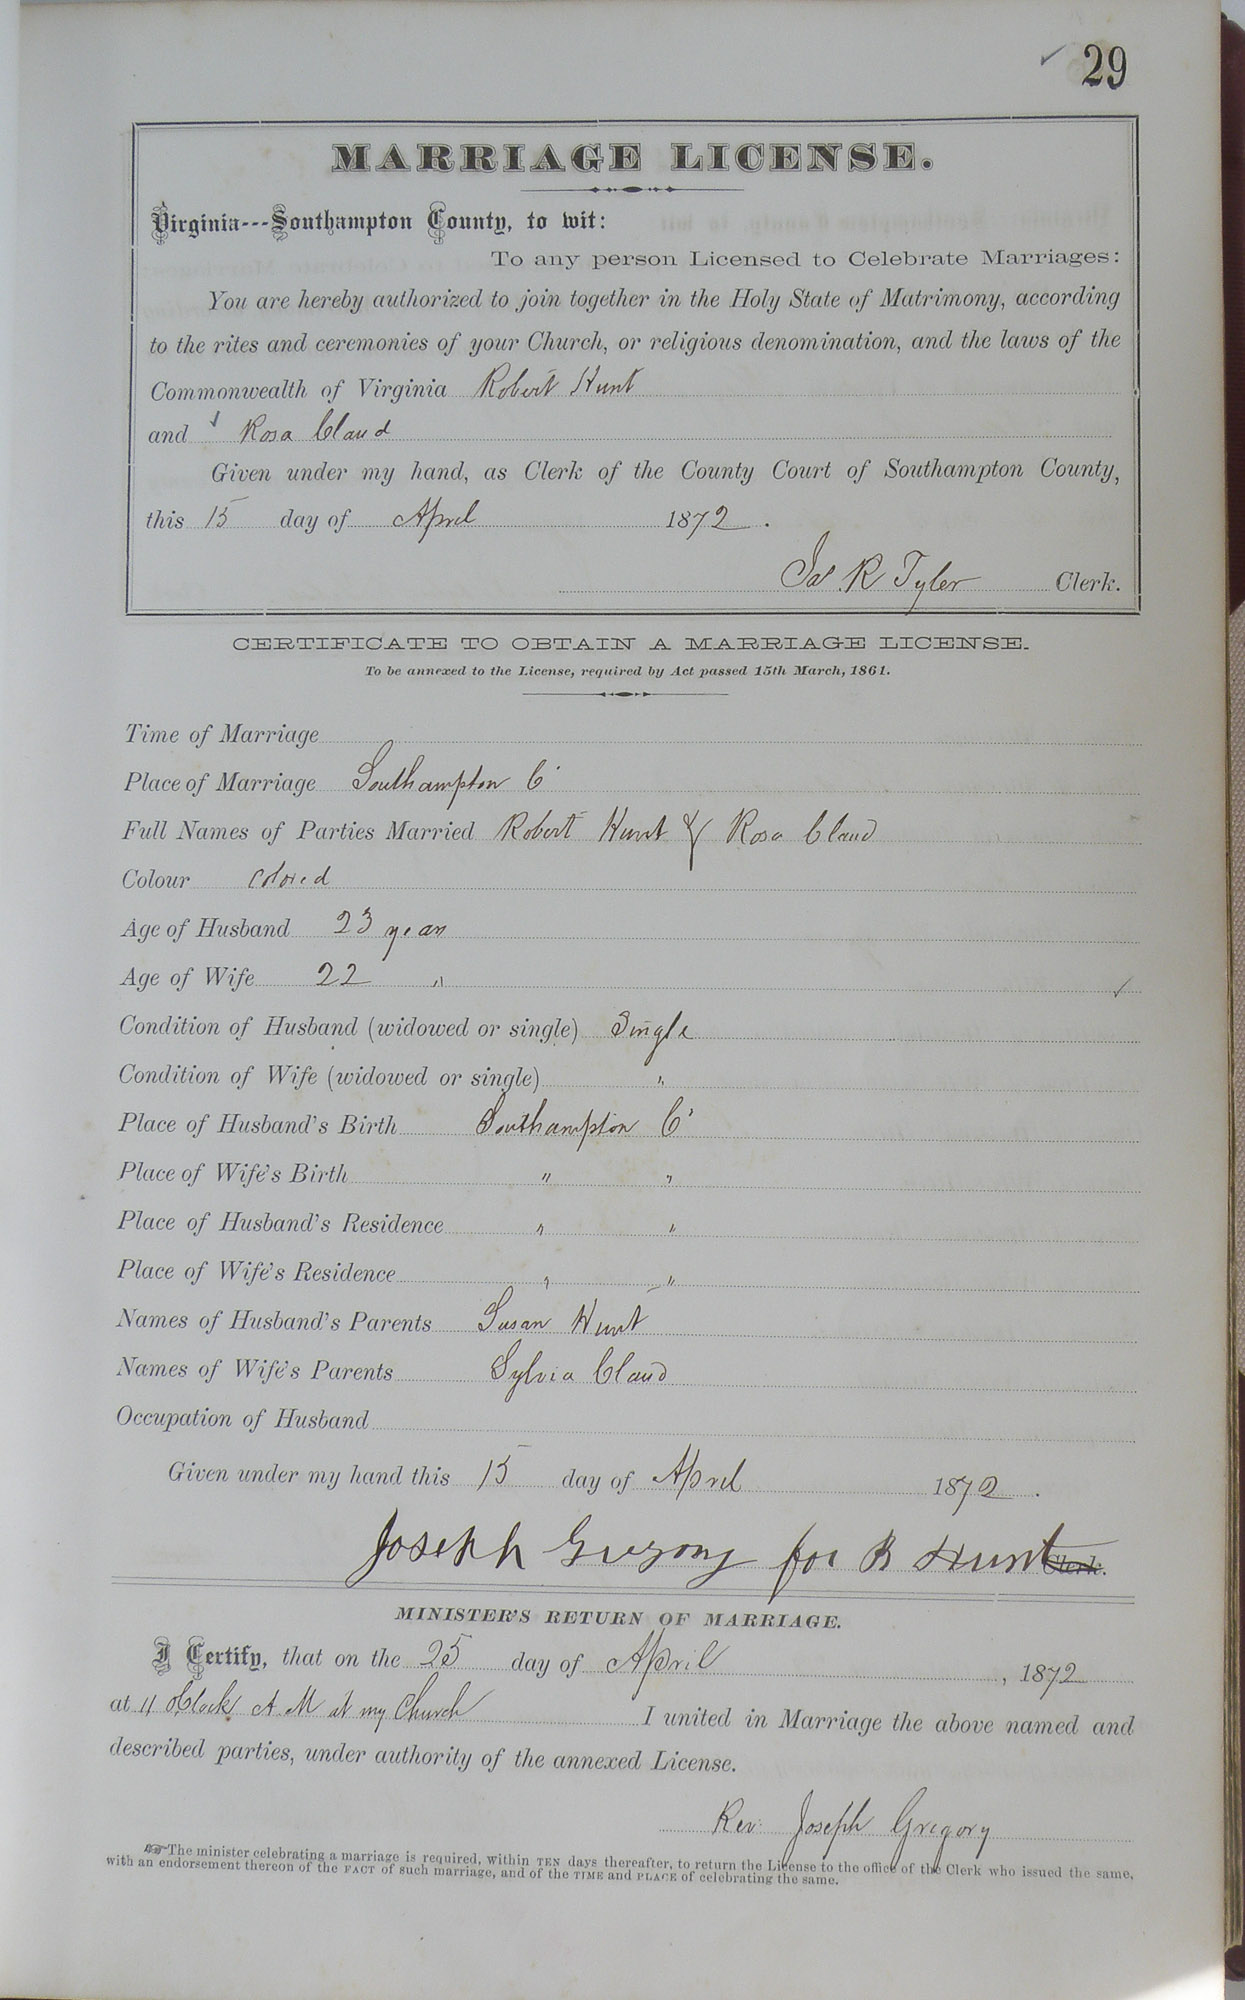 29
MARRIAGE LICENSE.
Virginia---Southampton County, to wit:
To any person Licensed to Celebrate Marriages:
You are hereby authorized to join together in the Holy State of Matrimony, according
to the rites and ceremonies of your Church, or religious denomination, and the laws of the
Commonwealth of Virginia Robert Hunt
and Rosa Claud
Given under my hand, as Clerk of the County Court of Southampton County,
this 15 day of April 1872.
Jas R Tyler Clerk.
CERTIFICATE TO OBTAIN A MARRIAGE LICENSE.
To be annexed to the License, required by Act passed 15th March, 1861.
Time of Marriage
Place of Marriage Southampton Co
Full Names of Parties Married Robert Hunt & Rosa Claud
Colour colored
Age of Husband 23 years
Age of Wife 22 "
Condition of Husband (widowed or single) Single
Condition of Wife (widowed or single) "
Place of Husband's Birth Southampton Co
Place of Wife's Birth " "
Place of Husband's Residence " "
Place of Wife's Residence " "
Names of Husband's Parents Susan Hunt
Names of Wife's Parents Sylvia Claud
Occupation of Husband
Given under my hand this 15 day of April 1872.
Joseph Gregory for R Hunt Clerk.
MINISTER'S RETURN OF MARRIAGE.
I Certify, that on the 25 day of April, 1872
at 11 Oclock A.M at my Church I united in Marriage the above named and
described parties, under authority of the annexed License.
Rev. Joseph Gregory
☞The minister celebrating a marriage is required, within TEN days thereafter, to return the License to the office of the Clerk who issued the same,
with an endorsement thereon of the FACT of such marriage, and of the TIME and PLACE of celebrating the same.